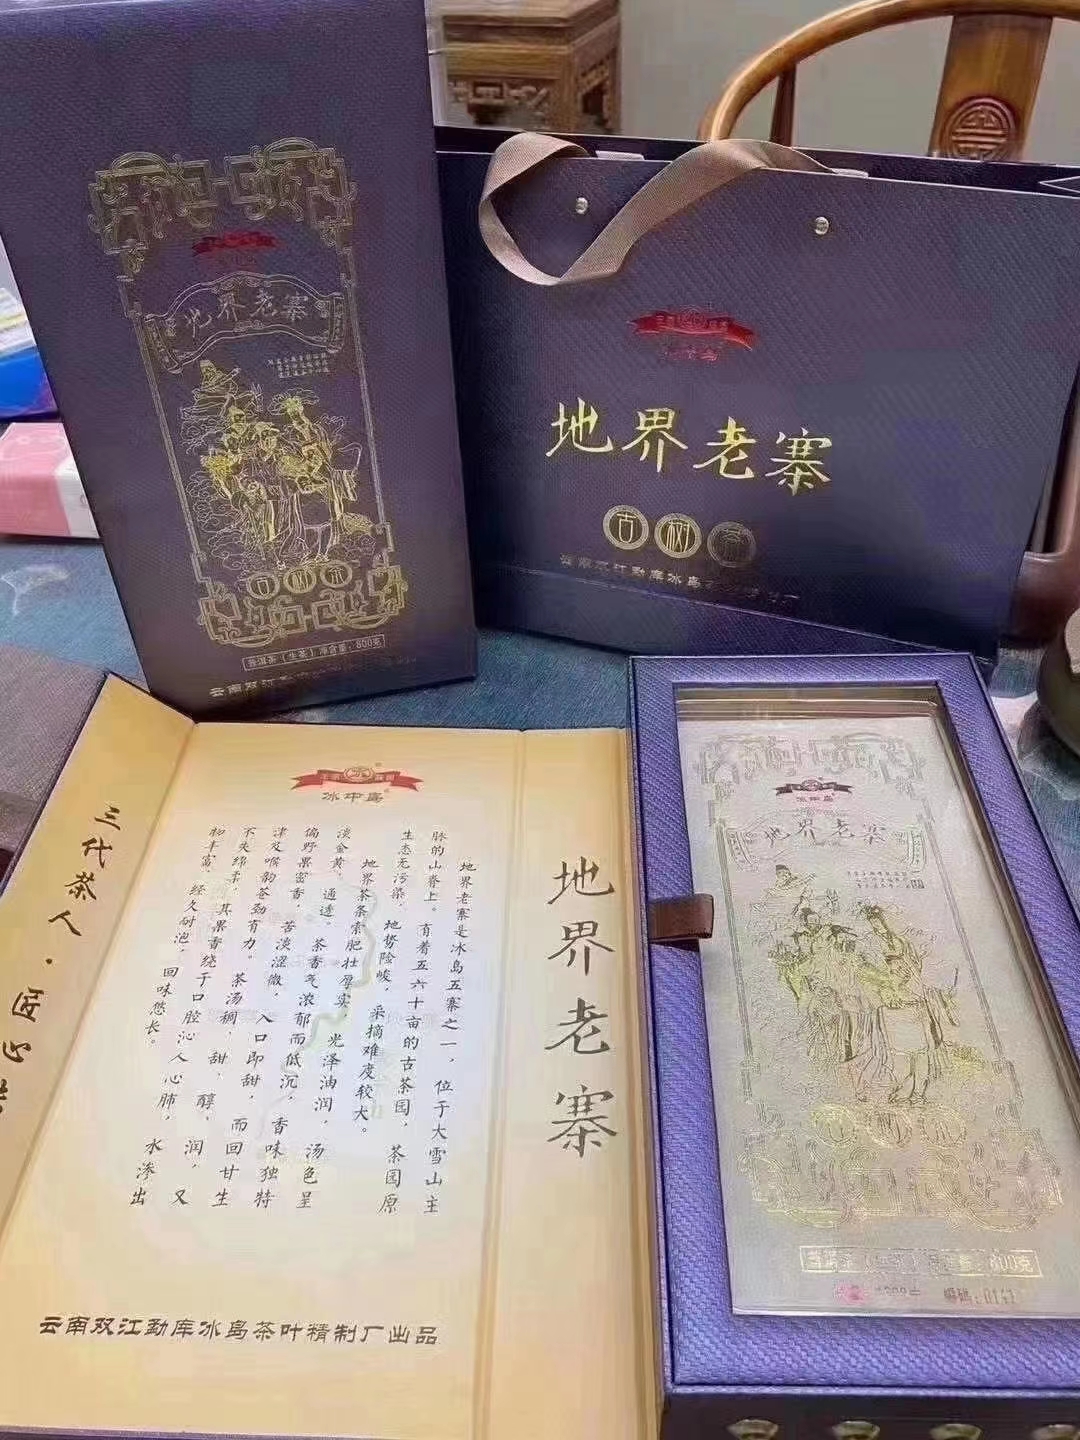 地界老寨
古树茶
普洱茶（生茶）净含量：800克
云南双江
地界老寨
古树茶
云南双江勐库冰岛
冰中岛
地界老寨
地界老寨是冰岛五寨之一，位于大雪山主
脉的山脊上。有着五六十亩的古茶园，茶园原
生态无污染，地势险峻，采摘难度较大。
地界茶条索肥壮厚实，光泽油润，汤色呈
淡金黄，通透，茶香气浓郁而低沉，香味独特
偏野果蜜香，苦淡涩微，入口即甜，而回甘生
津及喉韵苍劲有力。茶汤稠，甜，醇，润，又
不失绵柔，其果香绕于口腔沁人心肺，水渗出
物丰富，经久耐泡，回味悠长。
三代茶人·匠心
云南双江勐库冰岛茶叶精制厂出品
冰中岛
地界老寨
800克
编码:0141